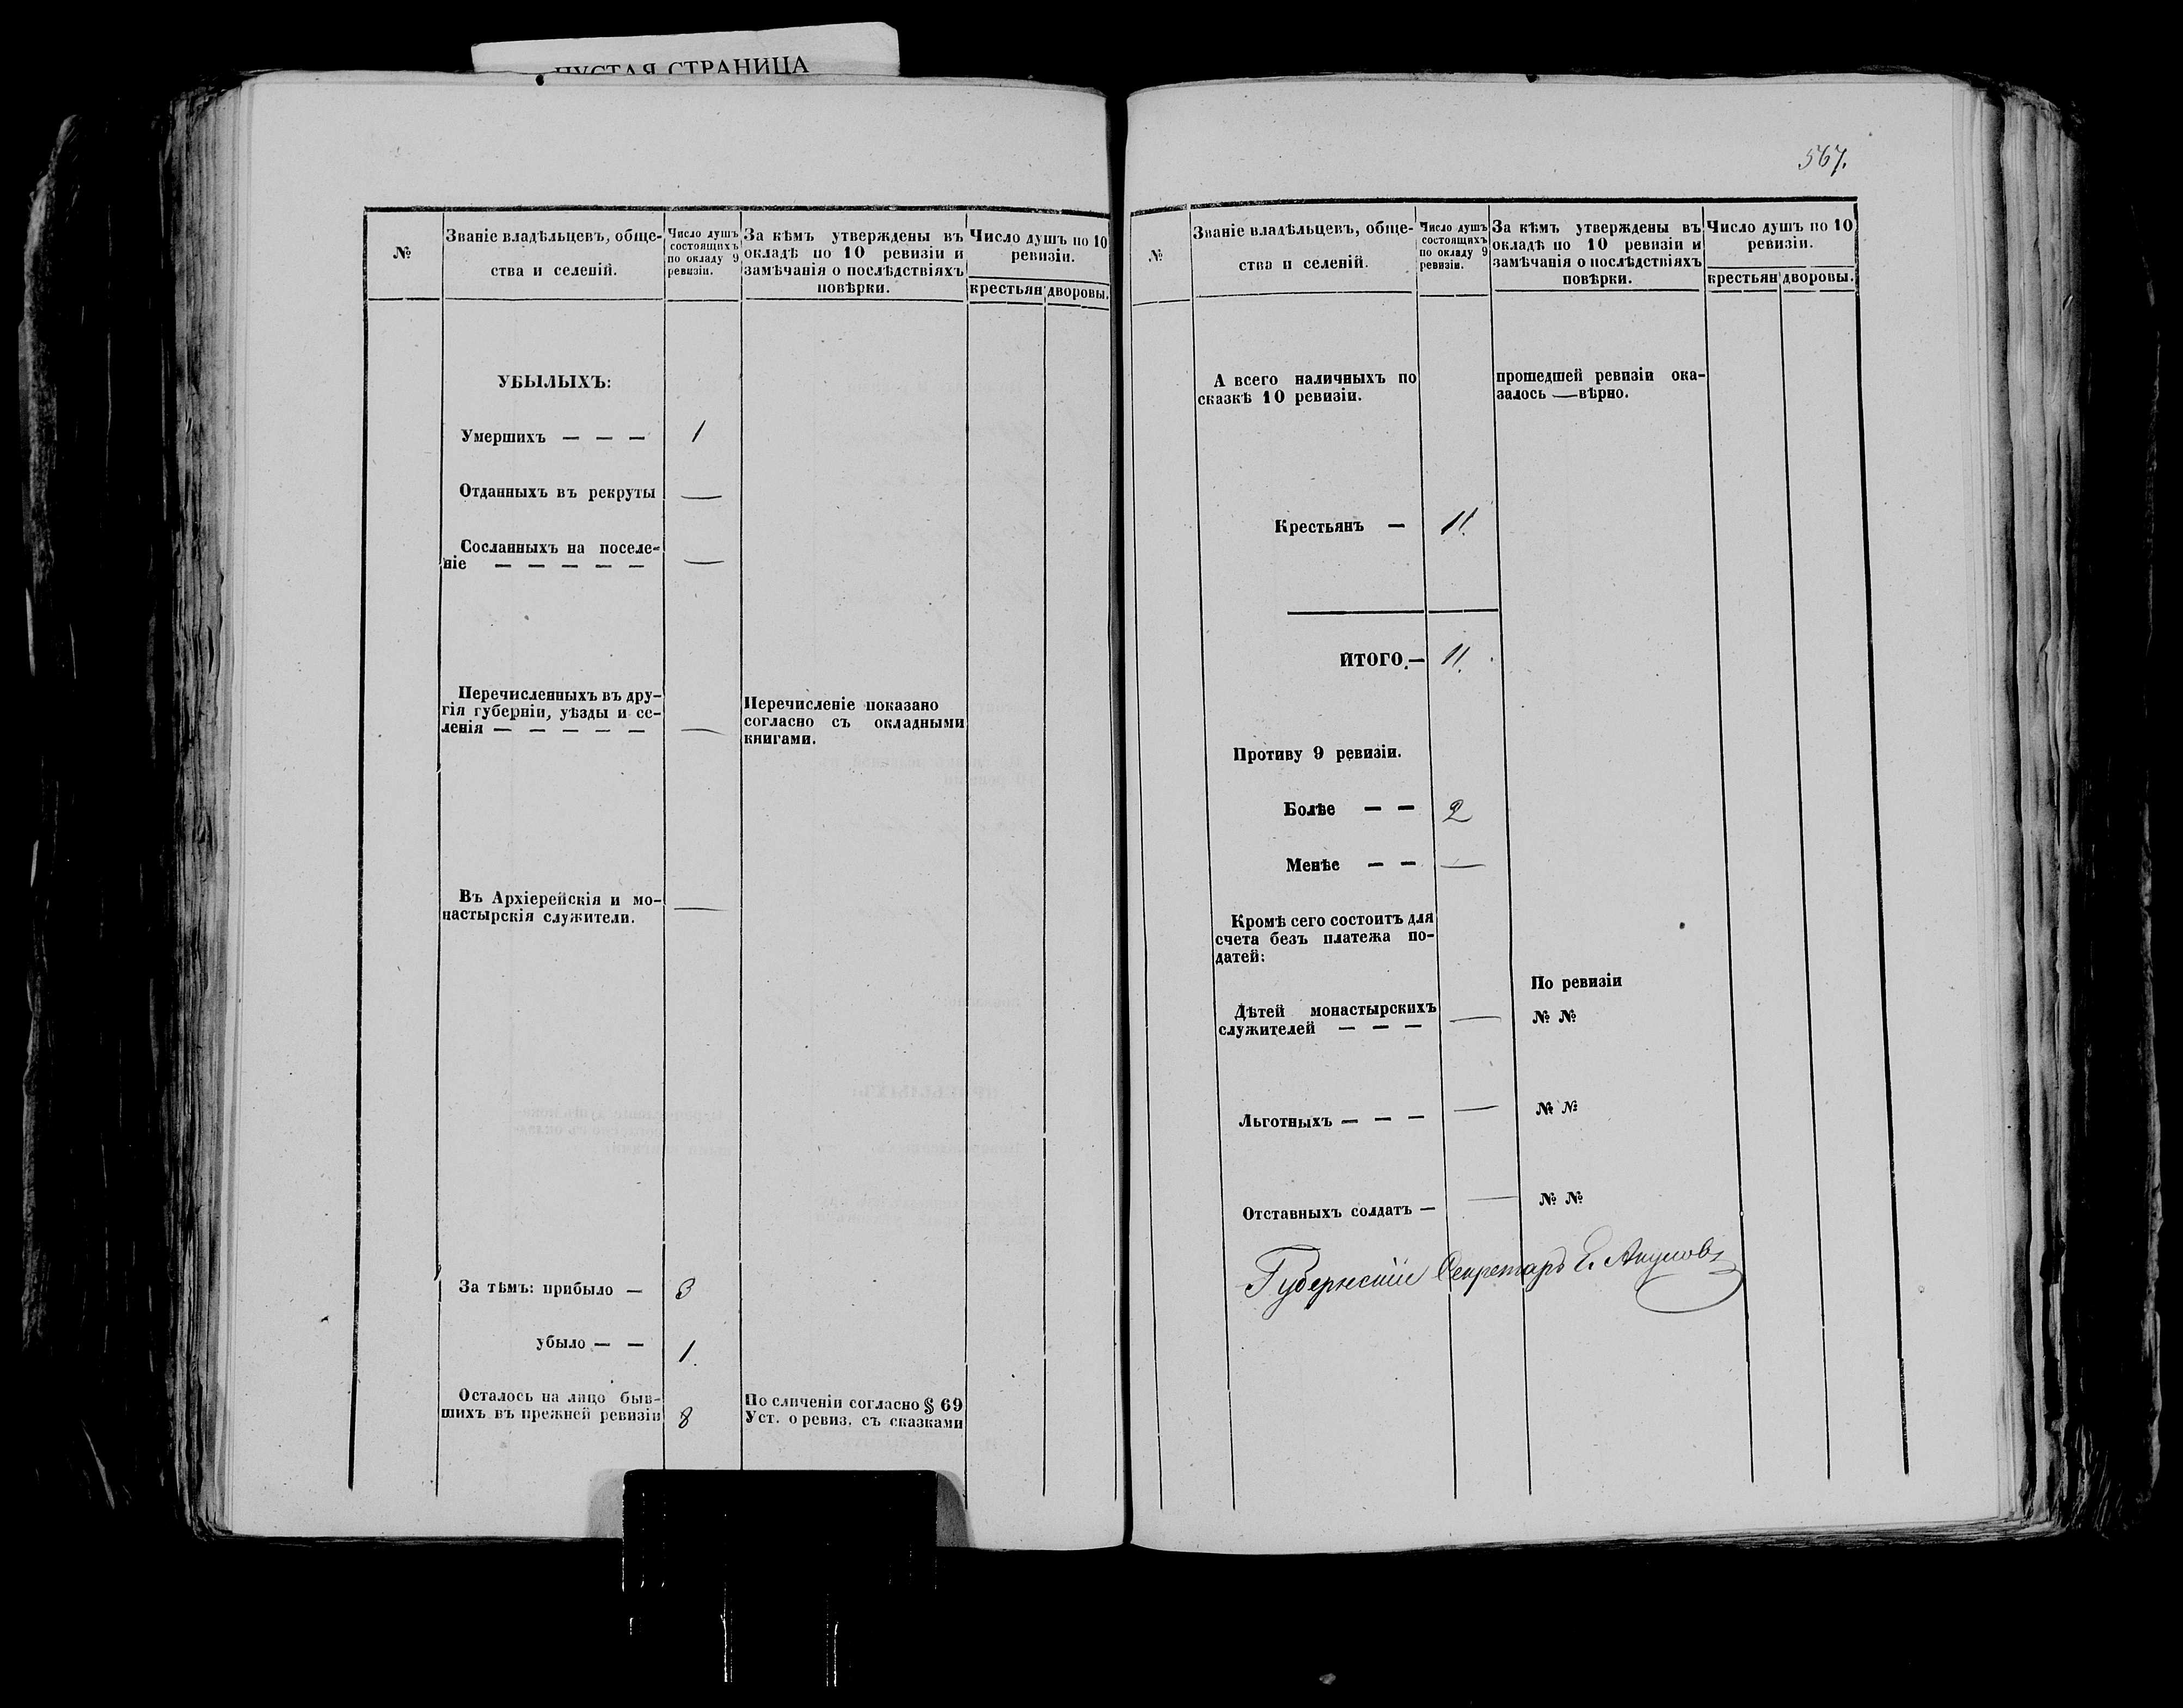 ПУСТАЯ СТРАНИЦА
№
Званіе владѣльцевъ, обще-
ства и селеній.
Число душъ
состоящихъ
по окладу 9
ревизіи.
За кѣмъ утверждены въ
окладѣ по 10 ревизіи и
замѣчанія о послѣдствіяхъ
повѣрки.
Число душъ по 10
ревизіи.
крестьян
дворовы.
УБЫЛЫХЪ:
Умершихъ — — — 1
Отданныхъ въ рекруты —
Сосланныхъ на поселе-
ніе — — — — — —
Перечисленныхъ въ дру-
гія губерніи, уѣзды и се-
ленія — — — — — —
Перечисленіе показано
согласно съ окладными
книгами.
Въ Архіерейскія и мо- —
настырскія служители.
За тѣмъ: прибыло — 3
убыло — — 1.
Осталось на лицо быв-
шихъ въ прежней ревизіи 8
По сличеніи согласно § 69
Уст. о ревиз. съ сказками
567.
№
Званіе владѣльцевъ, обще-
ства и селеній.
Число душъ
состоящихъ
по окладу 9
ревизіи.
За кѣмъ утверждены въ
окладѣ по 10 ревизіи и
замѣчанія о послѣдствіяхъ
повѣрки.
Число душъ по 10
ревизіи.
крестьян
дворовы.
А всего наличныхъ по
сказкѣ 10 ревизіи.
прошедшей ревизіи ока-
залось — вѣрно.
Крестьянъ — 11.
ИТОГО.— 11.
Противу 9 ревизіи.
Болѣе — — 2
Менѣе — — —
Кромѣ сего состоитъ для
счета безъ платежа по-
датей:
По ревизіи
Дѣтей монастырскихъ
служителей — — — — № №
Льготныхъ — — — — № №
Отставныхъ солдатъ — — № №
Губернскій Секретарь Е.